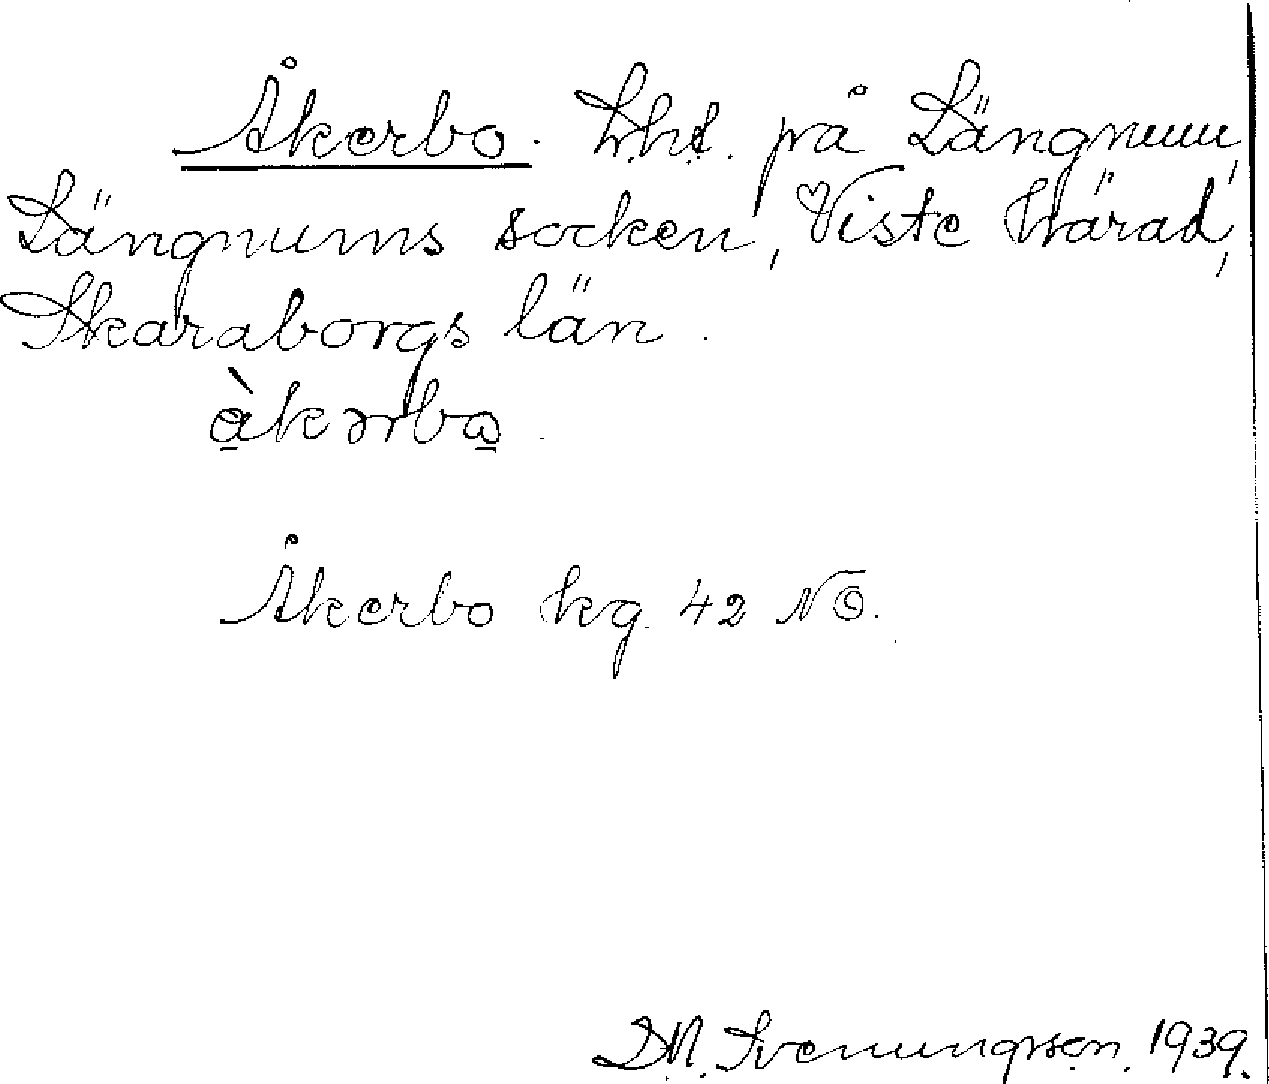 Åkerbo. Lht. på Längnum,
Längnums socken, Viste härad,
Skaraborgs län.
åkərbo.
Åkerbo kg. 42 NÖ.
D.N. Svenungsson. 1939.